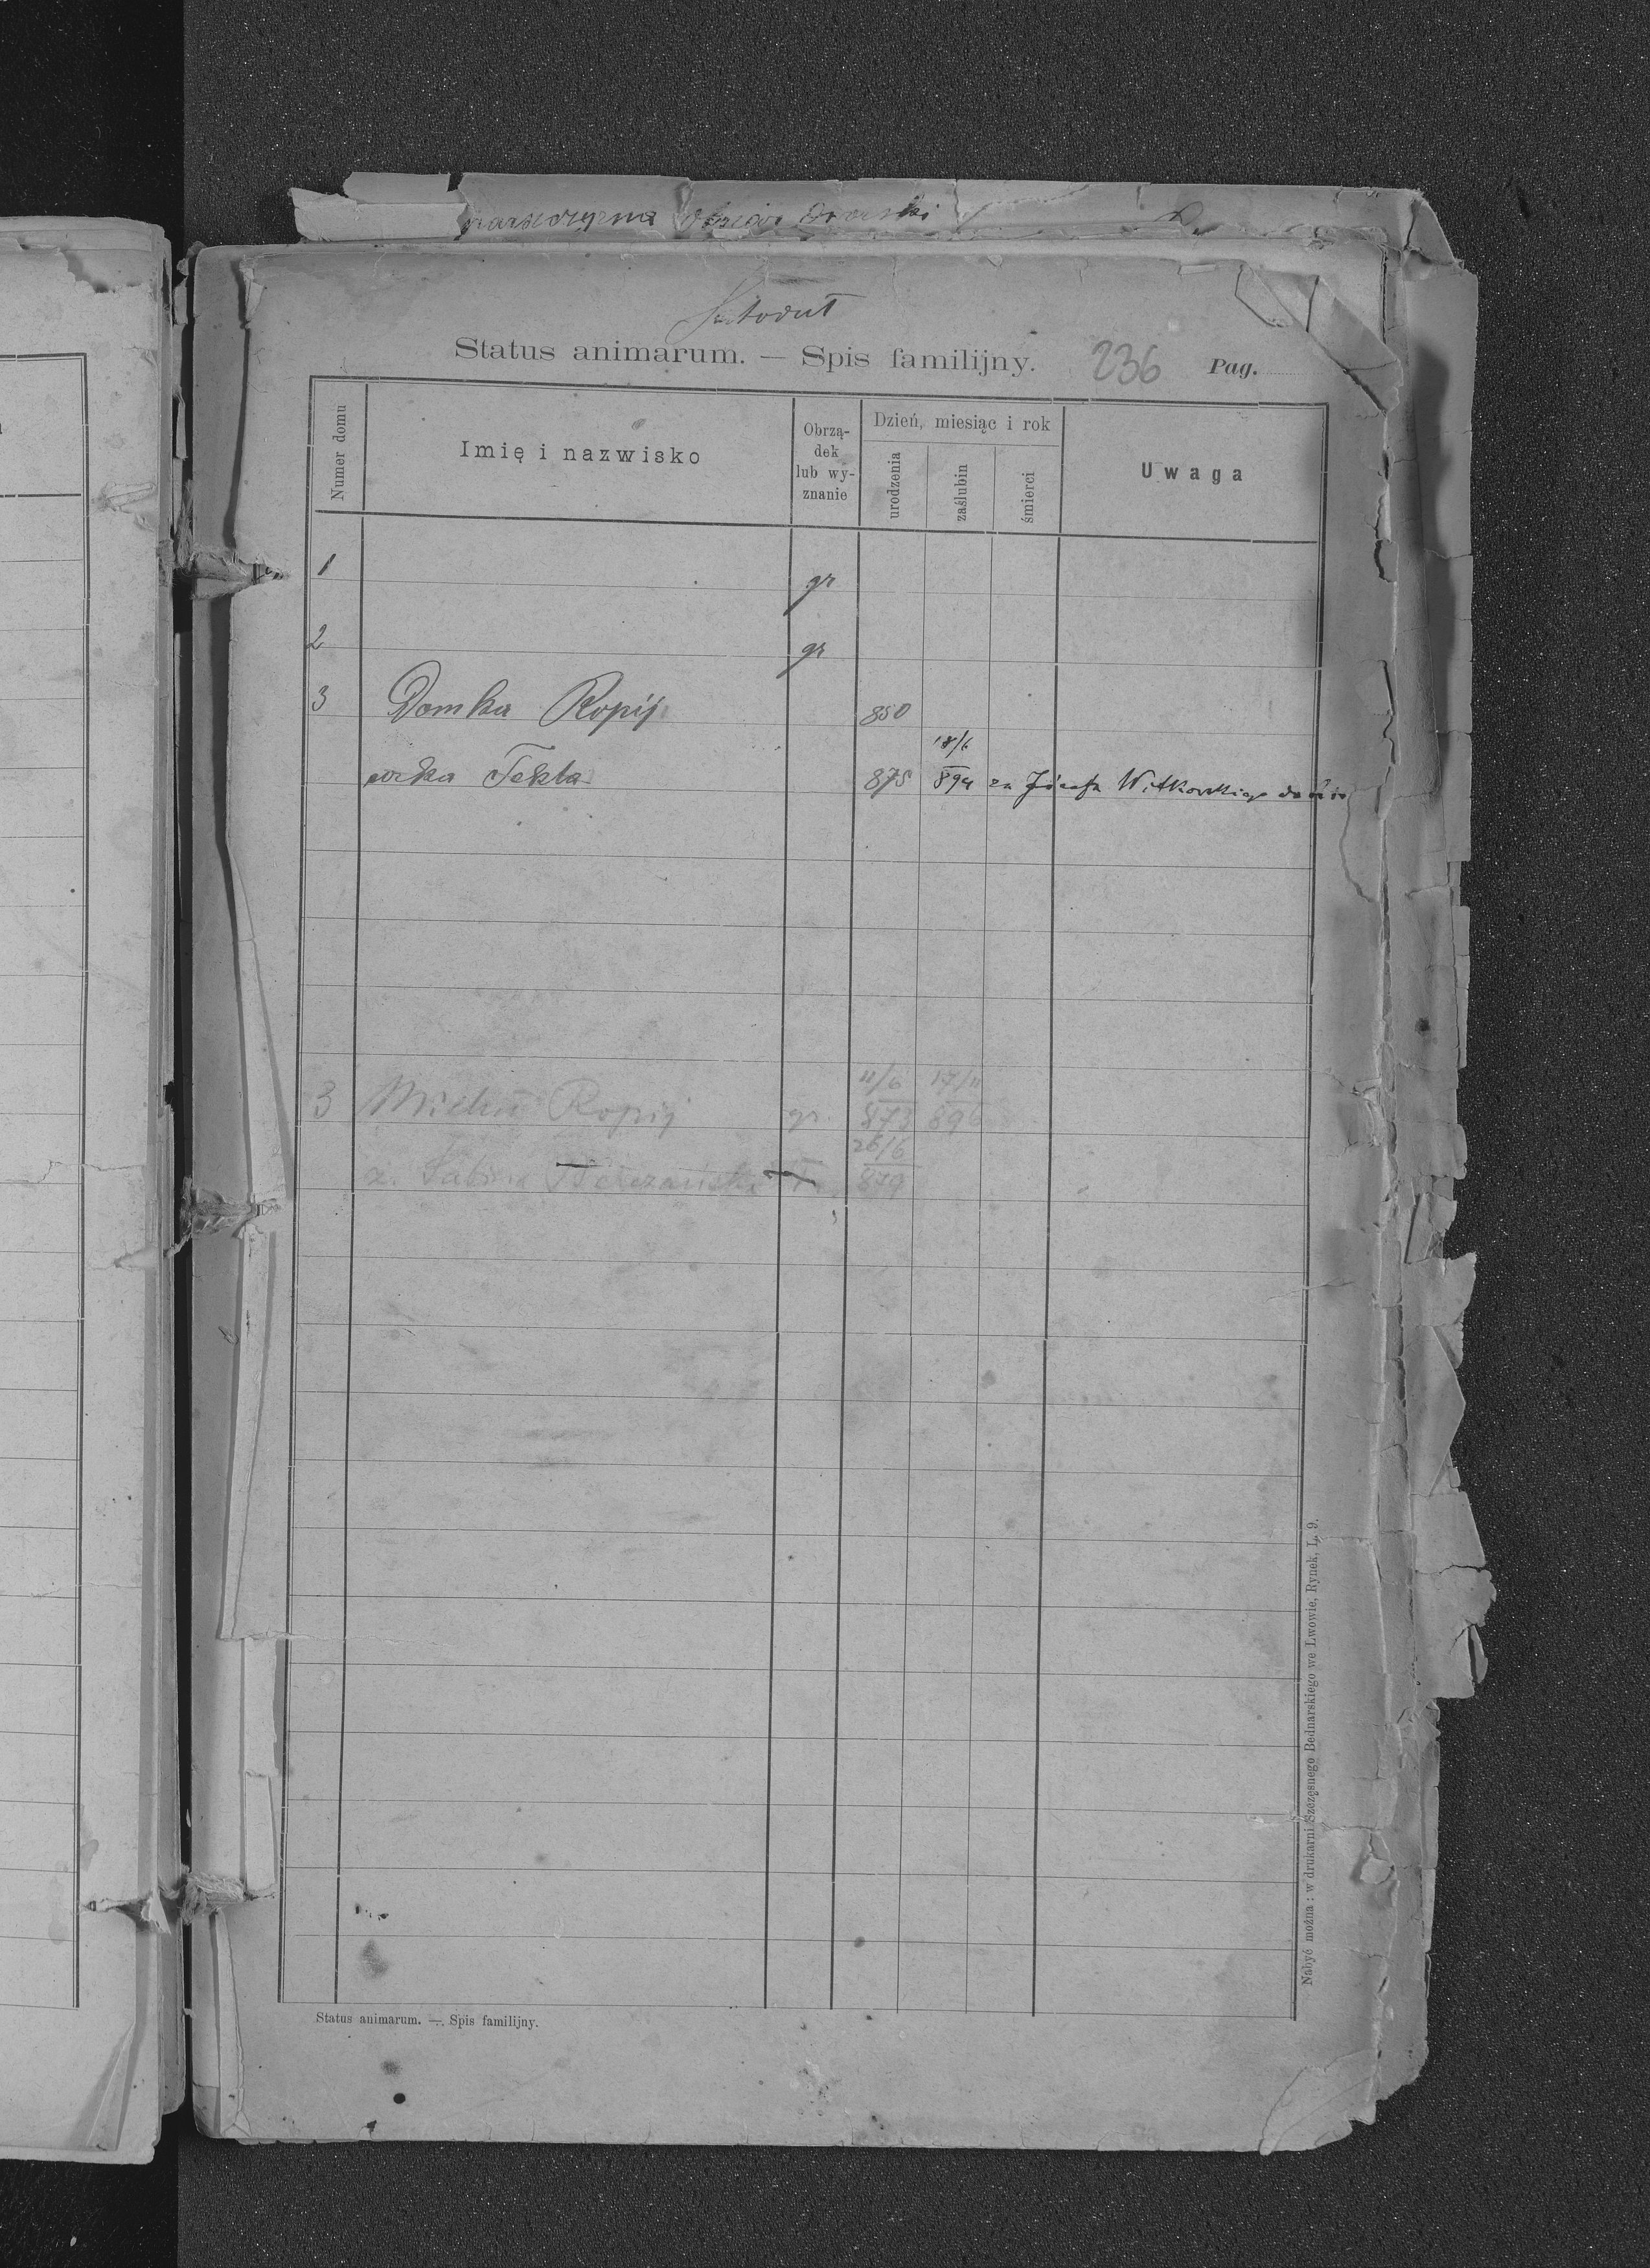 Status animarum. — Spis familijny. 236 Pag.
Numer domu
Imię i nazwisko
Obrzą-
dek
lub wy-
znanie
Dzień, miesiąc i rok
urodzenia
zaślubin
śmierci
Uwaga
1 gr
2 gr
3 Domka Ropij 850
18/6
córka Tekla 875 894 za Józefa Witkowskiego
11/6 17/11
3 Michał Ropij gr. 873 896
26/6
ż. Sabina 879
Nabyć można: w drukarni Szczęsnego Bednarskiego we Lwowie, Rynek, L. 9.
Status animarum. — Spis familijny.